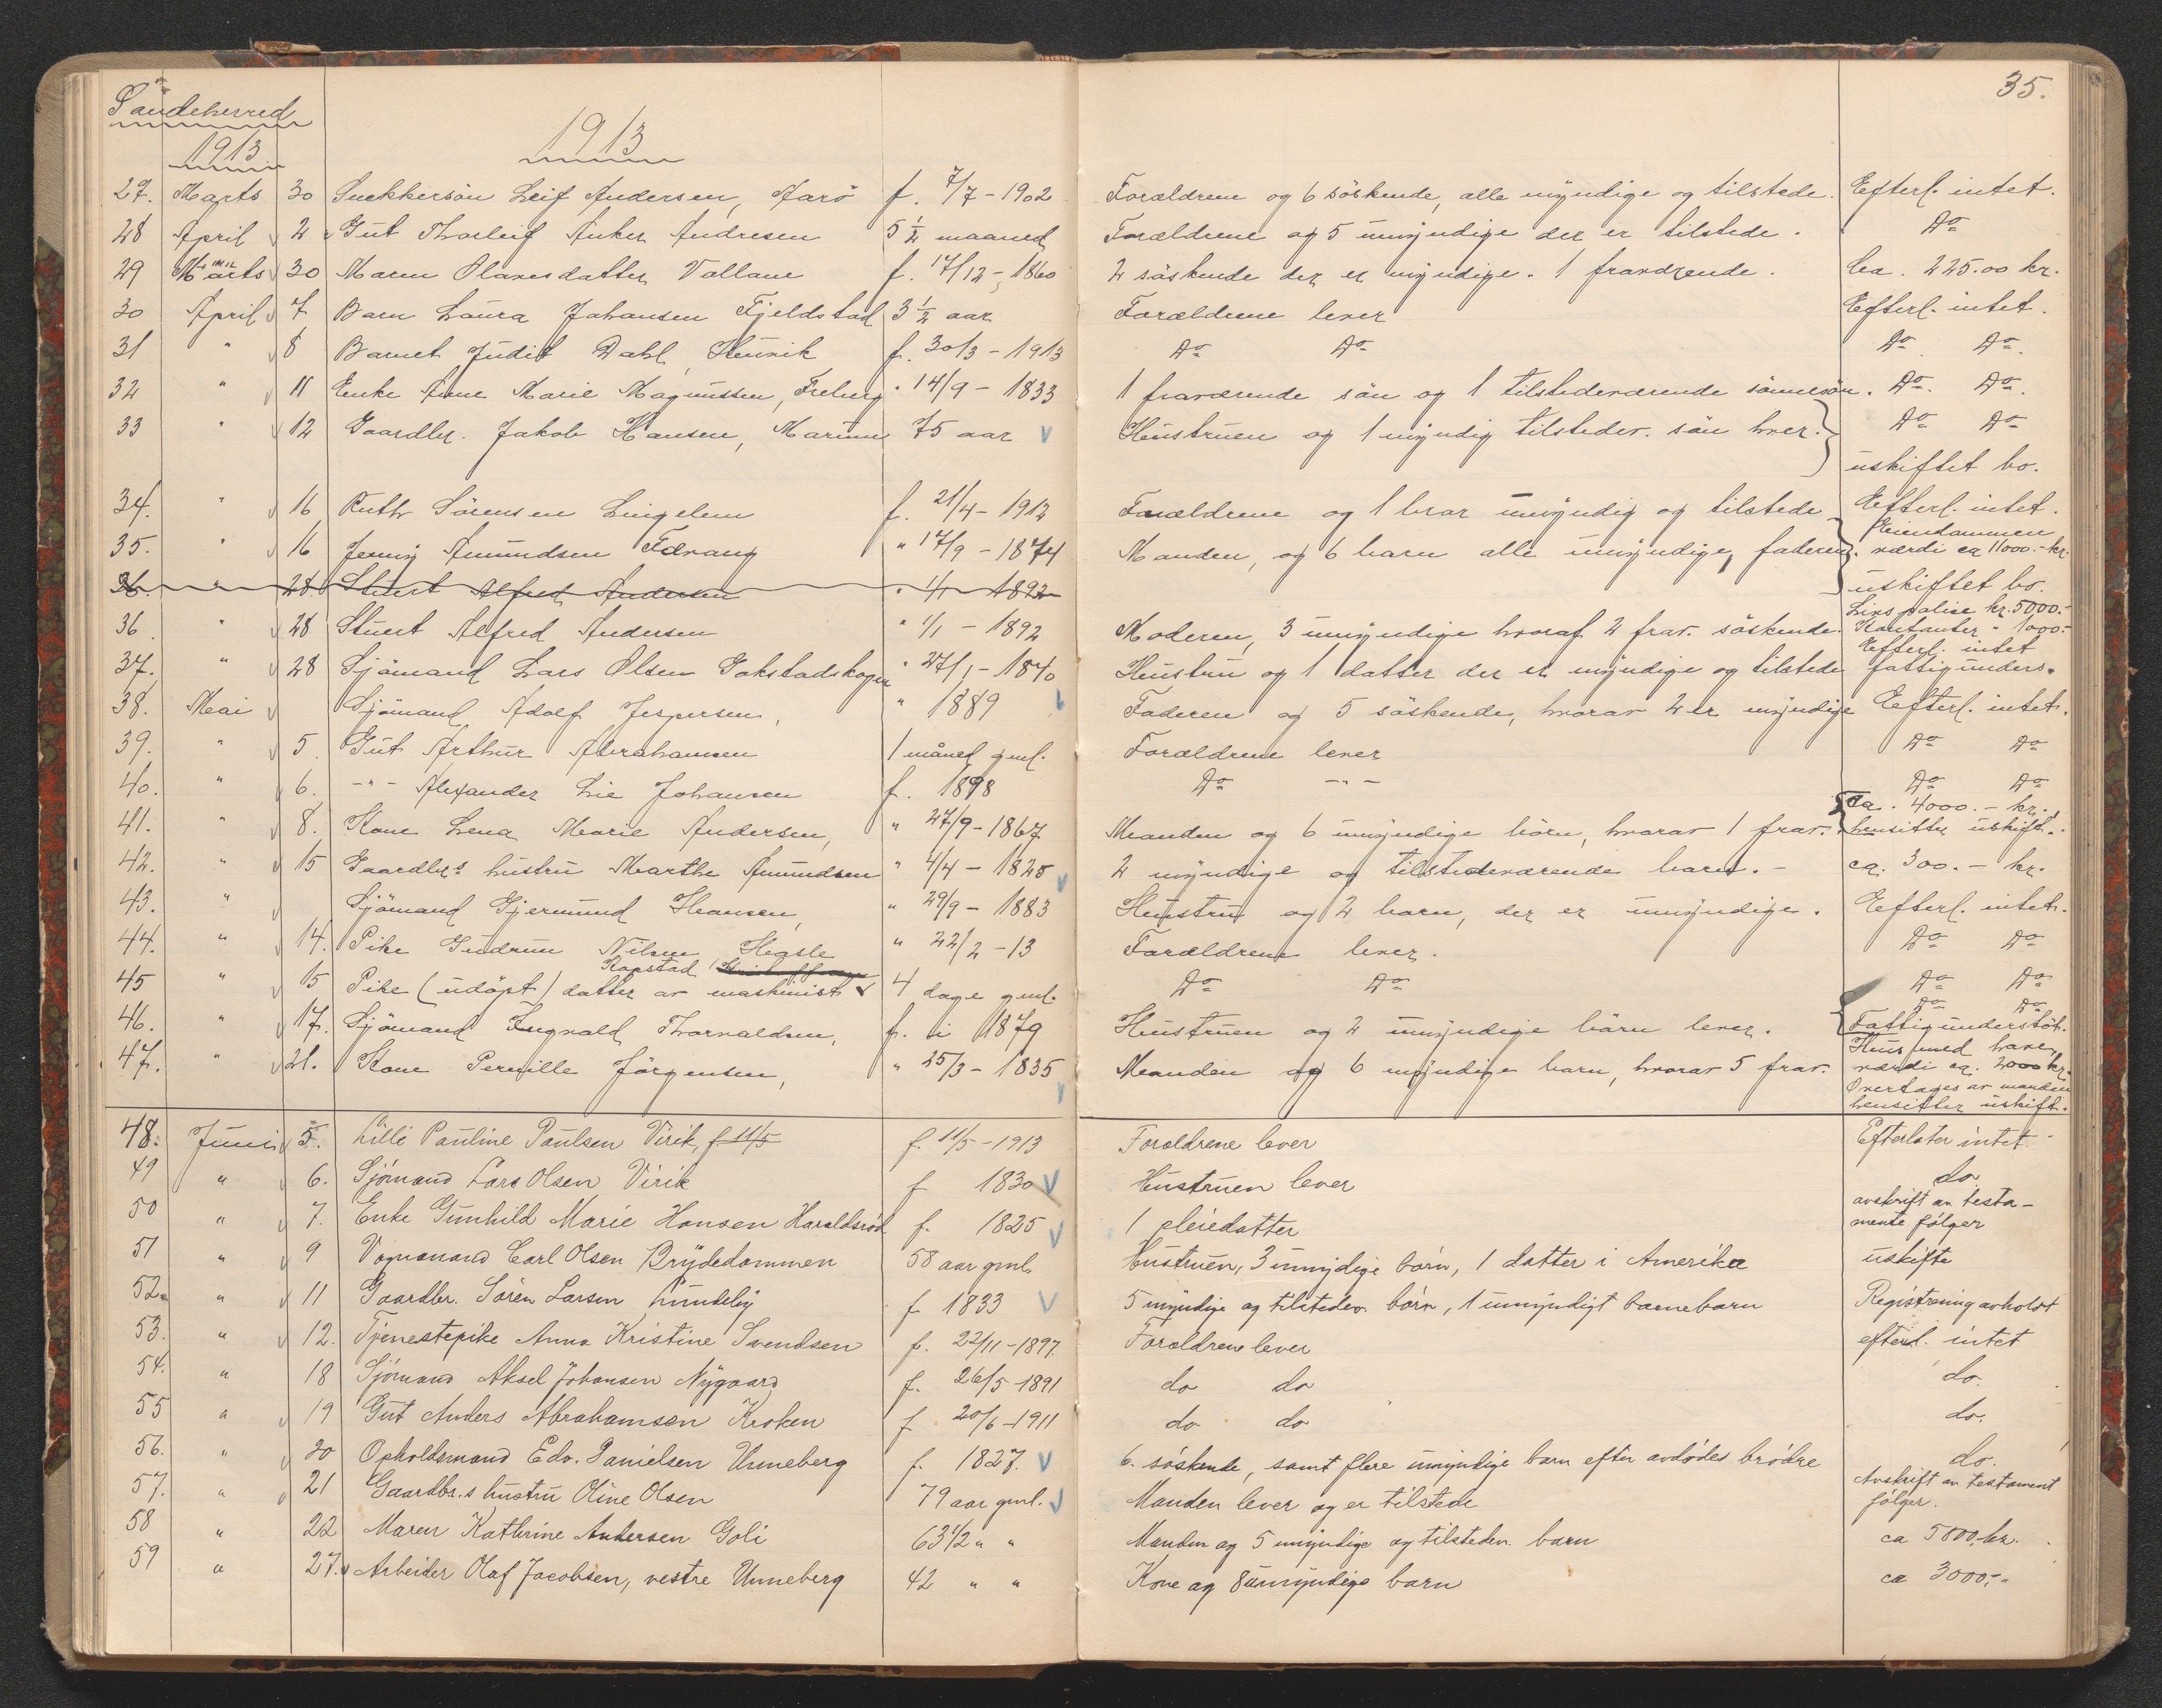 Sandeherred
1913
1913
35.
27. Marts 30 Snekkersön Leif Andersen, Aarö f. 7/7 - 1902 Forældrene og 6 söskende, alle myndige og tilstede. Efterl. intet.
28 April 2 Gut Thorleif Anker Andresen 5 1/2 maaned Forældrene og 5 umyndige der er tilstede. Do
29 Marts 30 Maren Olavesdatter Valløe f. 17/12 - 1860 2 söskende der er myndige. 1 fraværende. Ca. 225.00 kr.
30 April 7 Barn Laura Johansen Fjeldstad 3 1/2 aar Forældrene lever Efterl. intet.
31 " 8 Barnet Judit Dahl, f. 30/3 - 1913 Do Do Do Do.
32 " 11 Enke Anne Marie Magnussen, Freberg " 14/9 - 1833 1 fraværende sön og 1 tilstedeværende sönnesön. Do. Do.
33 " 12 Gaardbr. Jakob Hansen, Marum 75 aar Hustruen og 1 myndig tilstedev. sön hver. Do Do
uskiftet bo.
34. " 16 Ruth Sörensen Lingelem f. 21/4 - 1912 Forældrene og 1 bror umyndig og tilstede Efterl. intet.
35. " 16 Jenny Amundsen Fævang " 17/9 - 1874 Manden, og 6 barn alle umyndige, faderen. Eiendommen
værdi ca 11000.- kr.
uskiftet bo.
36. " 28. Stuert Alfred Andersen " 1/1 1892
36. " 28 Stuert Alfred Andersen " 1/1 - 1892 Moderen, 3 umyndige hvoraf 2 frav. söskende. Livspolise kr. 5000.-
Kontanter " 1000.-
37. " 28 Sjömand Lars Olsen Gokstadskogen " 27/1 - 1870 Hustru og 1 datter der er myndige og tilstede Efterl. intet
fattigunders.
38. Mai Sjömand Adolf Jespersen, " 1889 Faderen og 5 söskende, hvorav 2 er myndige Efterl. intet.
39. " 5. Gut Arthur Abrahamsen 1 måned gml. Forældrene lever Do Do
40. " 6. -"- Alexander Lie Johansen f. 1898 Do -"- Do Do
41. " 8. Kone Lena Marie Andersen, " 27/9 - 1867 Manden og 6 umyndige börn, hvorav 1 frav. Ca. 4000.- kr.
hensitter uskift.
42. " 15 Gaardbrs hustru Marthe Amundsen " 4/4 - 1828 2 myndige og tilstedeværende barn. - ca. 300.- kr.
43. " Sjömand Gjermund Hansen, " 29/9 - 1883 Hustru og 2 barn, der er umyndige. Efterl. intet.
44. " 14. Pike Gudrun Nilsen Hasle " 22/2 - 13 Forældrene lever. Do Do
Kapstad
45 " 15 Pike (udöpt) datter av maskinist 4 dage gml. Do Do Do Do
46. " 17. Sjömand Ingvald Thorvaldsen, f. i 1879 Hustruen og 2 umyndige börn lever. Do Do
Fattigunderstöt.
47. " 21. Kone Pernille Jörgensen, " 25/3 - 1835 Manden og 6 myndige barn, hvorav 5 frav. Hus med have,
værdi ca. 2000 kr.
Overtages av manden
hensitter uskift.
48. Juni 5. Lilli Pauline Paulsen Virik, f. 11/5 f. 11/5 - 1913 Forældrene lever Efterlater intet.
49 " 6. Sjömand Lars Olsen Virik f 1830 Hustruen lever do.
50 " 7. Enke Gunhild Marie Hansen Haraldsrød f. 1825 1 pleiedatter avskrift av testa-
mente følger
51 " 9 Vognmand Carl Olsen Brydedammen 58 aar gml. Hustruen, 3 umyndige börn, 1 datter i Amerika uskifte
52. " 11 Gaardbr. Sören Larsen Lundeby f. 1833 5 myndige og tilstedev. börn, 1 umyndigt barnebarn Registrering avholdt
53. " 12. Tjenestepike Anna Kristine Svendsen f. 22/11 - 1897. Forældrene lever efterl. intet
54. " 18 Sjömand Aksel Johansen Nygaard f. 26/5 - 1891 do do do.
55 " 19 Gut Anders Abrahamsen Kroken f. 20/6 - 1911 do do do.
56. " 20 Opholdsmand Edv. Danielsen Unneberg f. 1827. 6. söskende, samt flere umyndige barn efter avdödes brödre do.
57. " 21 Gaardbr.s hustru Oline Olsen 79 aar gml. Manden lever og er tilstede Avskrift av testament
følger.
58 " 22 Maren Kathrine Andersen Goli 63 1/2 " " Manden og 5 myndige og tilstedev. barn ca 5800,- kr.
59 " 27. Arbeider Olaf Jacobsen, vestre Unneberg 42 " " Kone og 8 umyndige barn ca 3000,- "